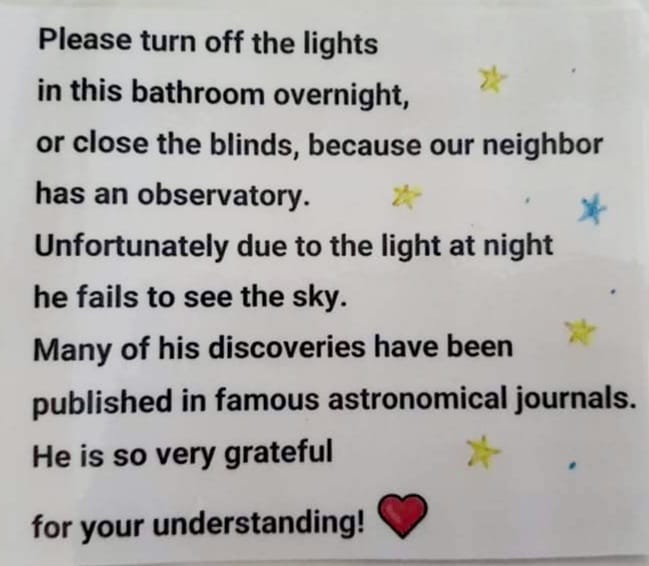 Please turn off the lights
in this bathroom overnight,
or close the blinds, because our neighbor
has an observatory.
Unfortunately due to the light at night
he fails to see the sky.
Many of his discoveries have been
published in famous astronomical journals.
He is so very grateful
for your understanding!